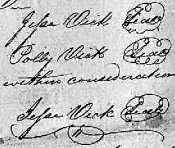 Jesse Dick Seal
Polly Dick Seal
within consideration
Jesse Dick Seal